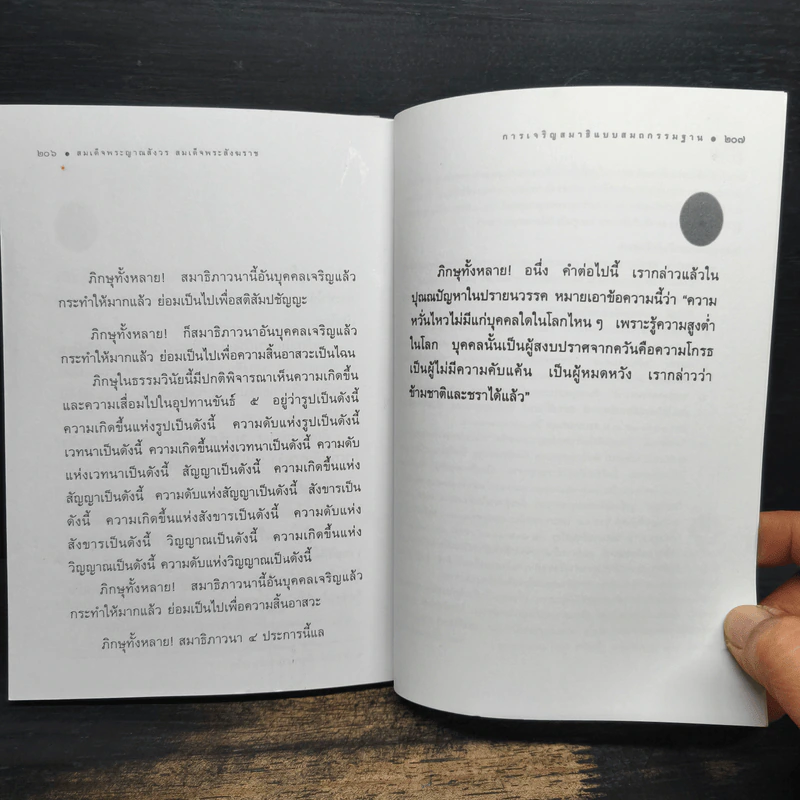 ๒๐๖ ● สมเด็จพระญาณสังวร สมเด็จพระสังฆราช
ภิกษุทั้งหลาย! สมาธิภาวนานี้อันบุคคลเจริญแล้ว
กระทำให้มากแล้ว ย่อมเป็นไปเพื่อสติสัมปชัญญะ
ภิกษุทั้งหลาย! ก็สมาธิภาวนาอันบุคคลเจริญแล้ว
กระทำให้มากแล้ว ย่อมเป็นไปเพื่อความสิ้นอาสวะเป็นไฉน
ภิกษุในธรรมวินัยนี้มีปกติพิจารณาเห็นความเกิดขึ้น
และความเสื่อมไปในอุปทานขันธ์ ๕ อยู่ว่ารูปเป็นดังนี้
ความเกิดขึ้นแห่งรูปเป็นดังนี้ ความดับแห่งรูปเป็นดังนี้
เวทนาเป็นดังนี้ ความเกิดขึ้นแห่งเวทนาเป็นดังนี้ ความดับ
แห่งเวทนาเป็นดังนี้ สัญญาเป็นดังนี้ ความเกิดขึ้นแห่ง
สัญญาเป็นดังนี้ ความดับแห่งสัญญาเป็นดังนี้ สังขารเป็น
ดังนี้ ความเกิดขึ้นแห่งสังขารเป็นดังนี้ ความดับแห่ง
สังขารเป็นดังนี้ วิญญาณเป็นดังนี้ ความเกิดขึ้นแห่ง
วิญญาณเป็นดังนี้ ความดับแห่งวิญญาณเป็นดังนี้
ภิกษุทั้งหลาย! สมาธิภาวนานี้อันบุคคลเจริญแล้ว
กระทำให้มากแล้ว ย่อมเป็นไปเพื่อความสิ้นอาสวะ
ภิกษุทั้งหลาย! สมาธิภาวนา ๔ ประการนี้แล
การเจริญสมาธิแบบสมถกรรมฐาน ● ๒๐๗
ภิกษุทั้งหลาย! อนึ่ง คำต่อไปนี้ เรากล่าวแล้วใน
ปุณณปัญหาในปรายนวรรค หมายเอาข้อความนี้ว่า “ความ
หวั่นไหวไม่มีแก่บุคคลใดในโลกไหน ๆ เพราะรู้ความสูงต่ำ
ในโลก บุคคลนั้นเป็นผู้สงบปราศจากควันคือความโกรธ
เป็นผู้ไม่มีความคับแค้น เป็นผู้หมดหวัง เรากล่าวว่า
ข้ามชาติและชราได้แล้ว”